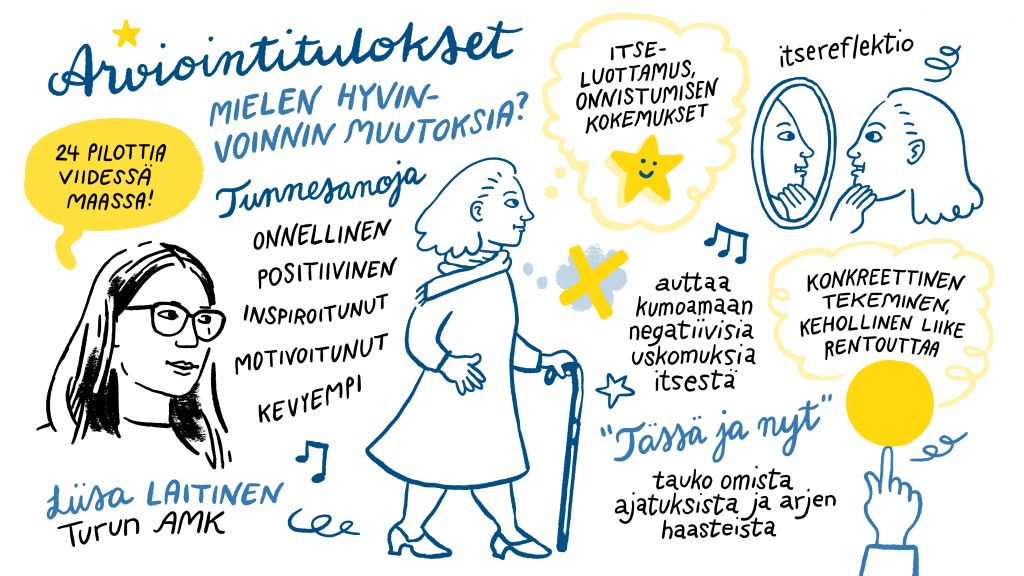 Arviointitulokset
MIELEN HYVIN-
VOINNIN MUUTOKSIA?
24 PILOTTIA
VIIDESSÄ
MAASSA!
Tunnesanoja
ONNELLINEN
POSITIIVINEN
INSPIROITUNUT
MOTIVOITUNUT
KEVYEMPI
Liisa LAITINEN
Turun AMK
ITSE-
LUOTTAMUS,
ONNISTUMISEN
KOKEMUKSET
itsereflektio
auttaa
kumoamaan
negatiivisia
uskomuksia
itsestä
KONKREETTINEN
TEKEMINEN,
KEHOLLINEN LIIKE
RENTOUTTAA
"Tässä ja nyt"
tauko omista
ajatuksista ja arjen
haasteista